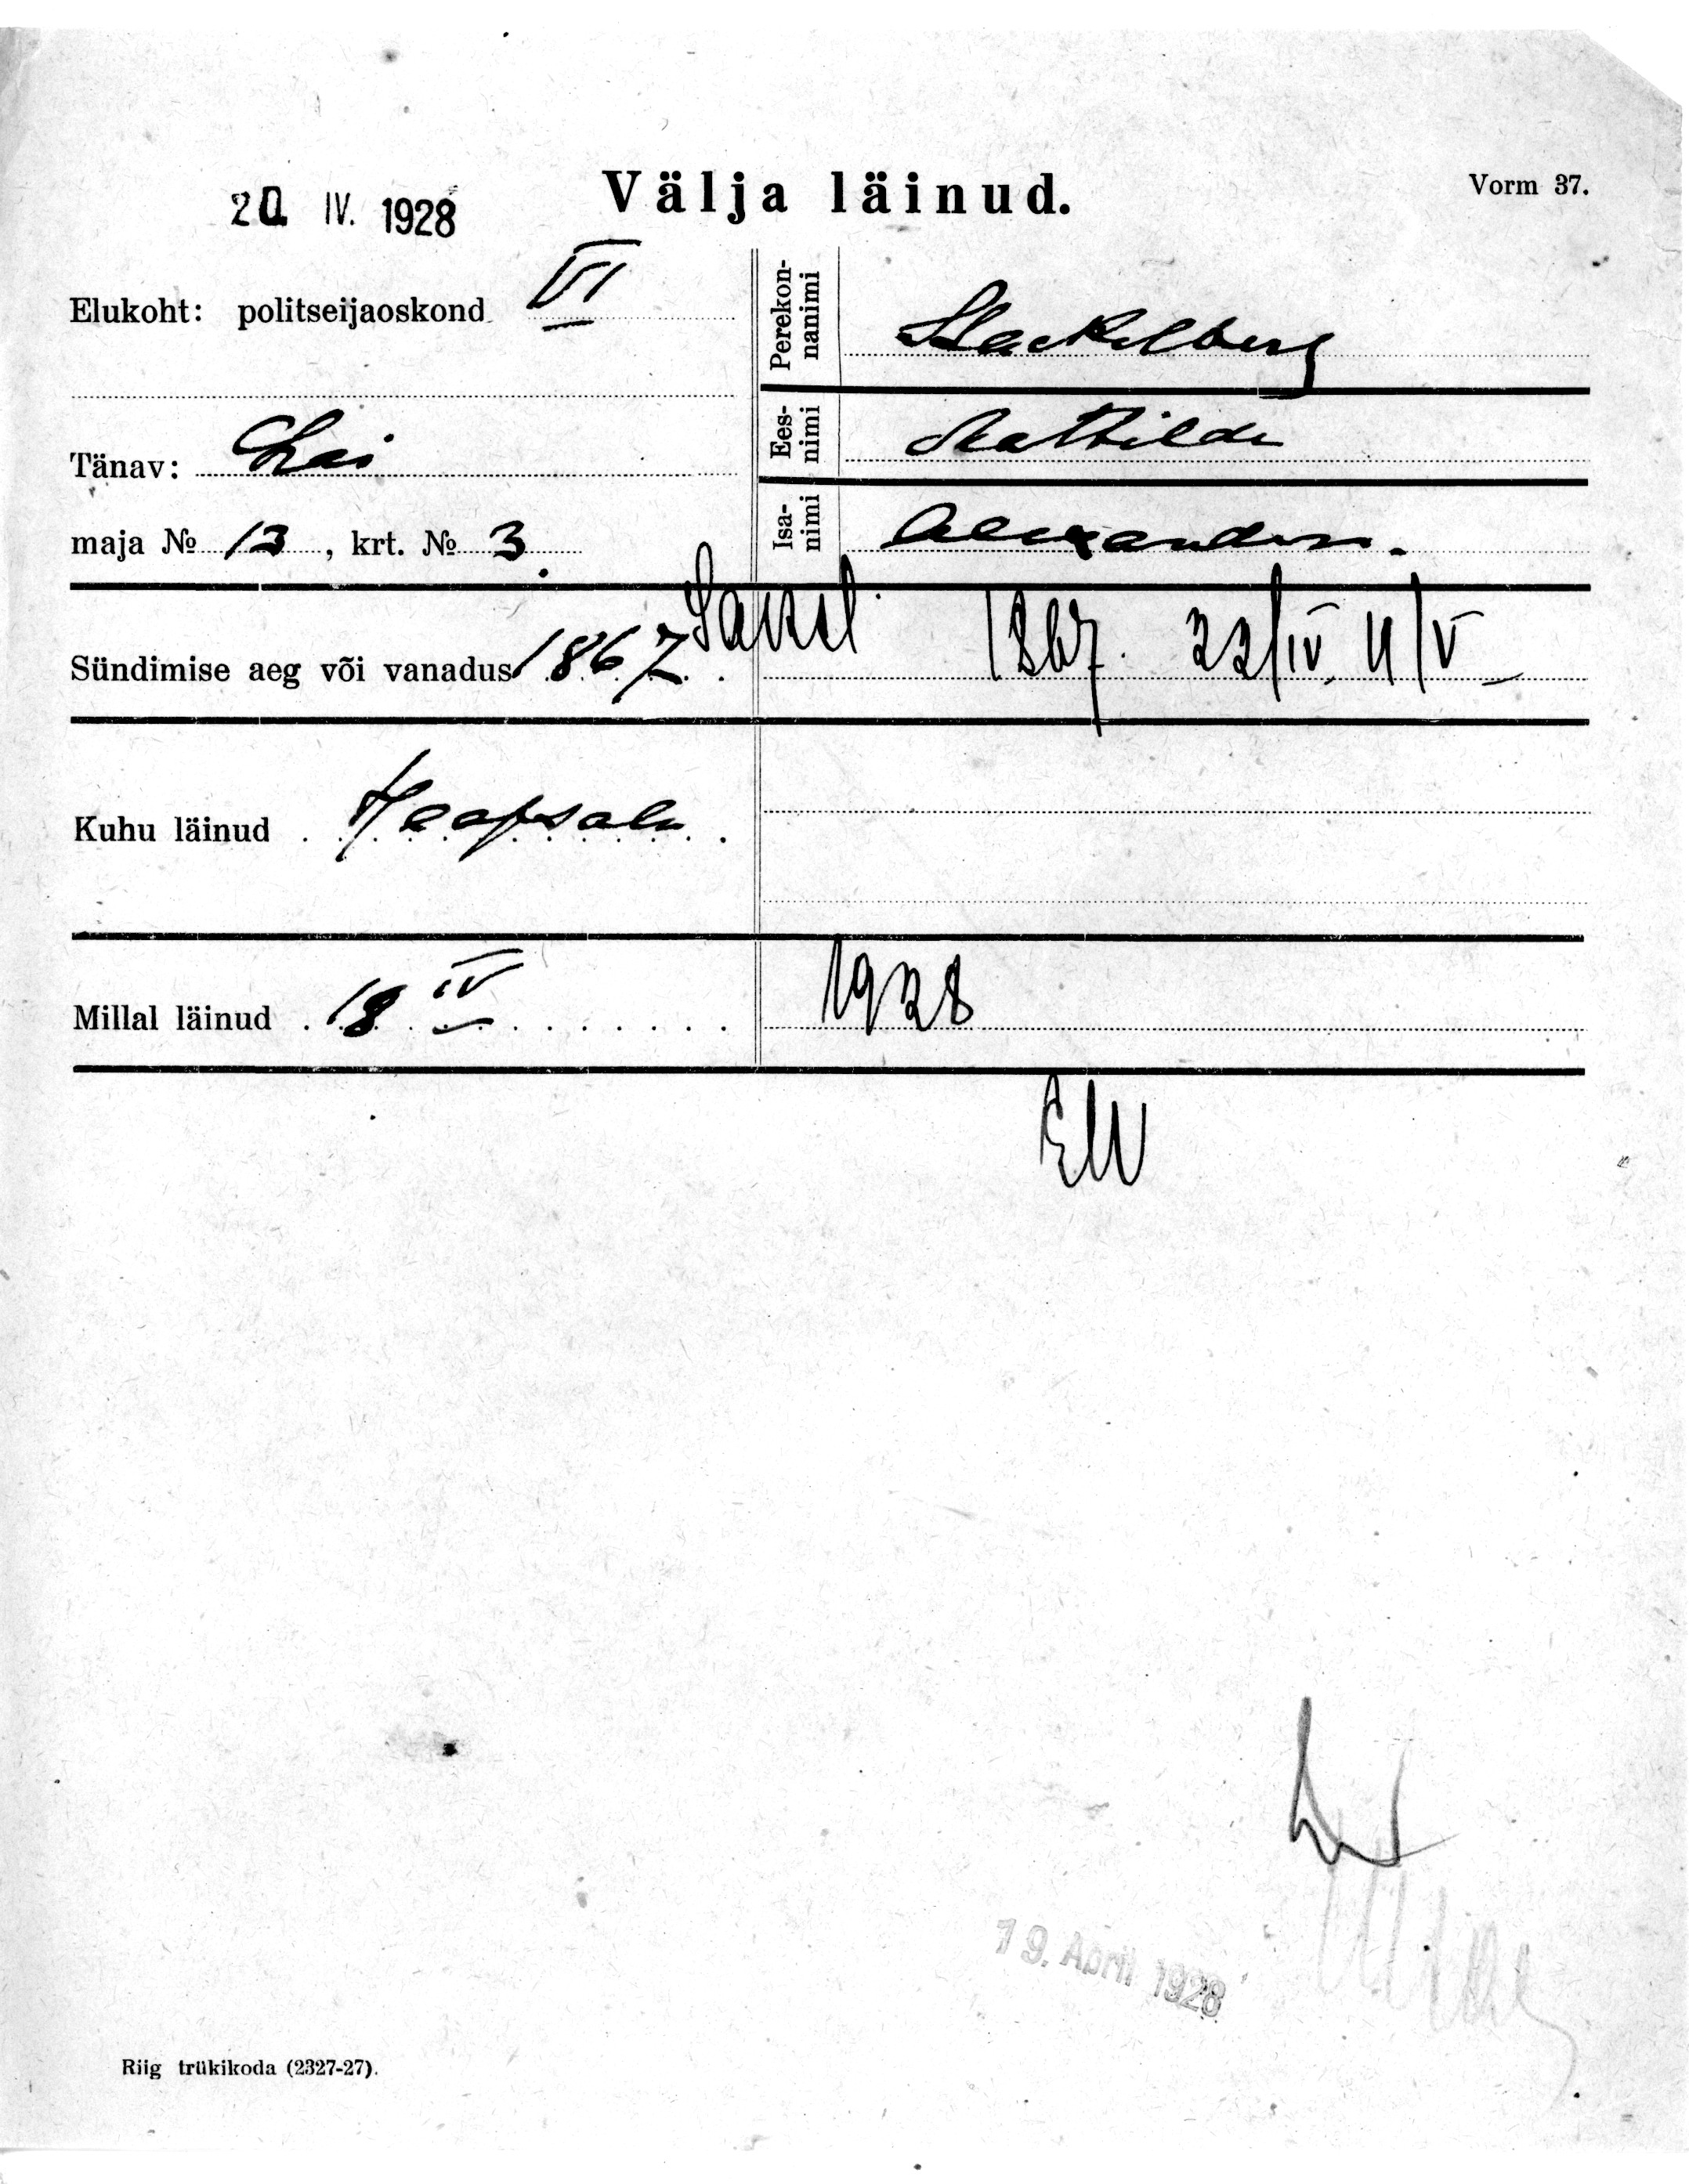 20. IV. 1928
Välja läinud.
Vorm 37.
Elukoht: politseijaoskond VI
Perekonnanimi Stackelberg
Tänav: Lai
Eesnimi Mathilde
maja № 13, krt. № 3.
Isanimi Alexander.
Sündimise aeg või vanadus 1867 1867. 22/IV. 4/V
Kuhu läinud Haapsalu
Millal läinud 18 IV 1928
19. April 1928
Riig trükikoda (2327-27).